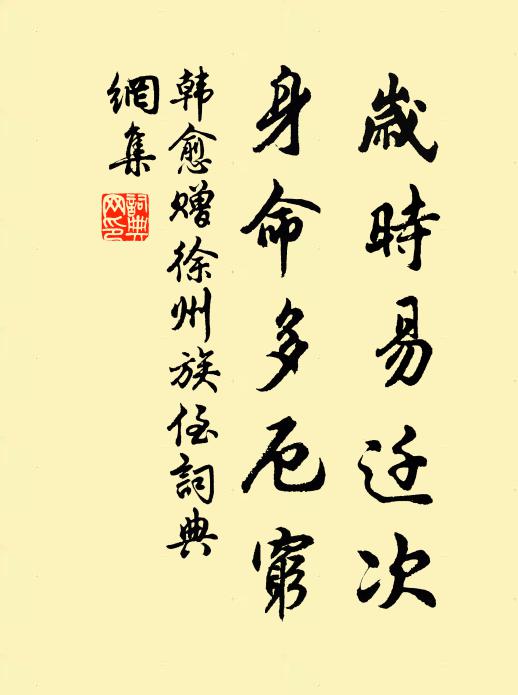 歲時易迁次
身命多厄窮
韩愈赠徐州族侄詞典
網集
詞典
网印